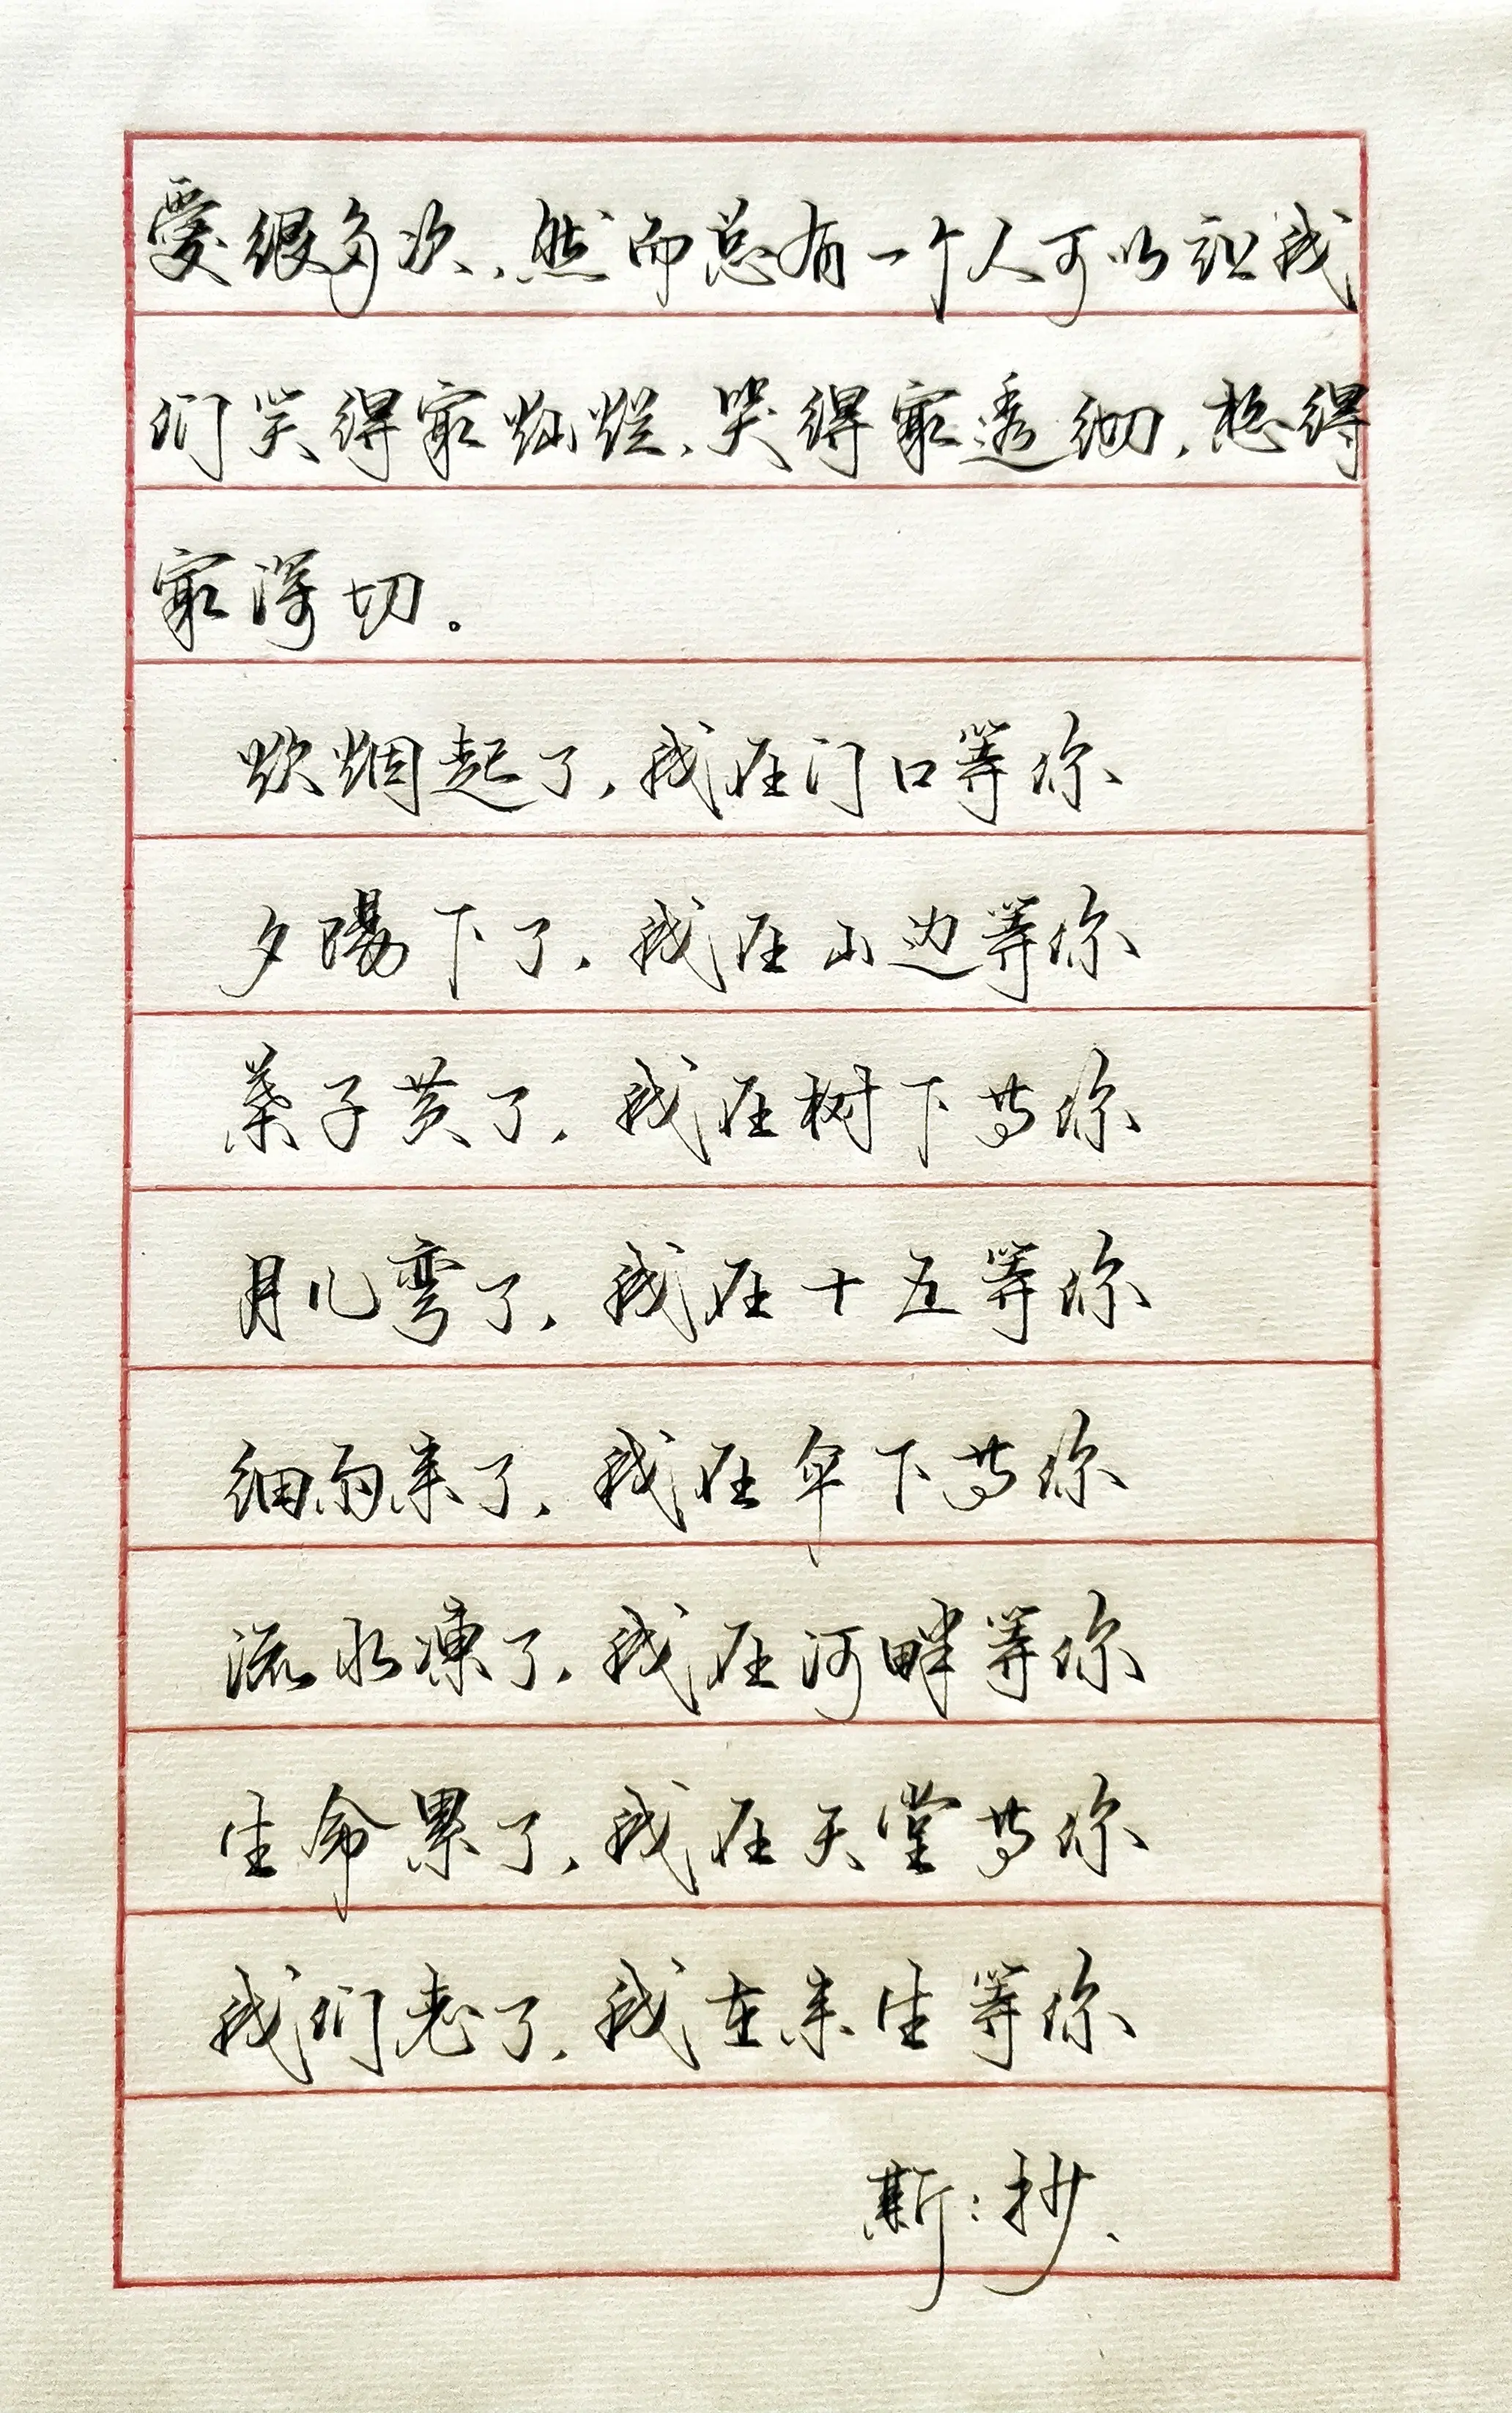 爱很多次,然而总有一个人可以让我
们笑得最灿烂,哭得最透彻,想得
最深切。
炊烟起了,我在门口等你
夕陽下了,我在山边等你
葉子黄了,我在树下等你
月儿弯了,我在十五等你
细雨来了,我在伞下等你
流水凍了,我在河畔等你
生命累了,我在天堂等你
我们老了,我在来生等你
斯:抄、